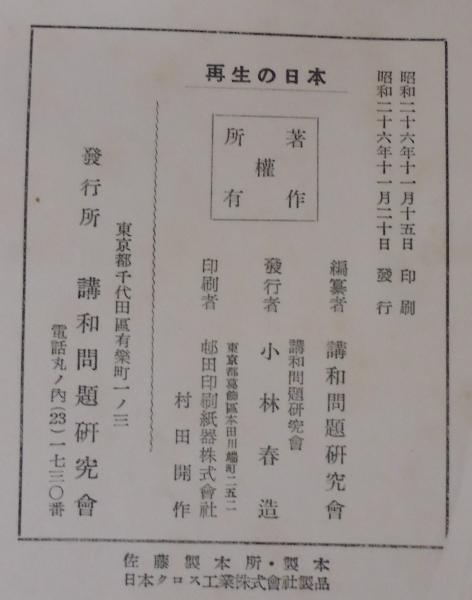 再生の日本
昭和二十六年十一月十五日 印刷
昭和二十六年十一月二十日 發行
著作權所有
編纂者 講和問題研究會
講和問題研究會
發行者 小林春造
東京都葛飾區本田川端町二五二
印刷者 邨田印刷紙器株式會社
村田開作
東京都千代田區有樂町一ノ三
發行所 講和問題研究會
電話丸ノ內(23)一七三〇番
佐藤製本所・製本
日本クロス工業株式會社製品